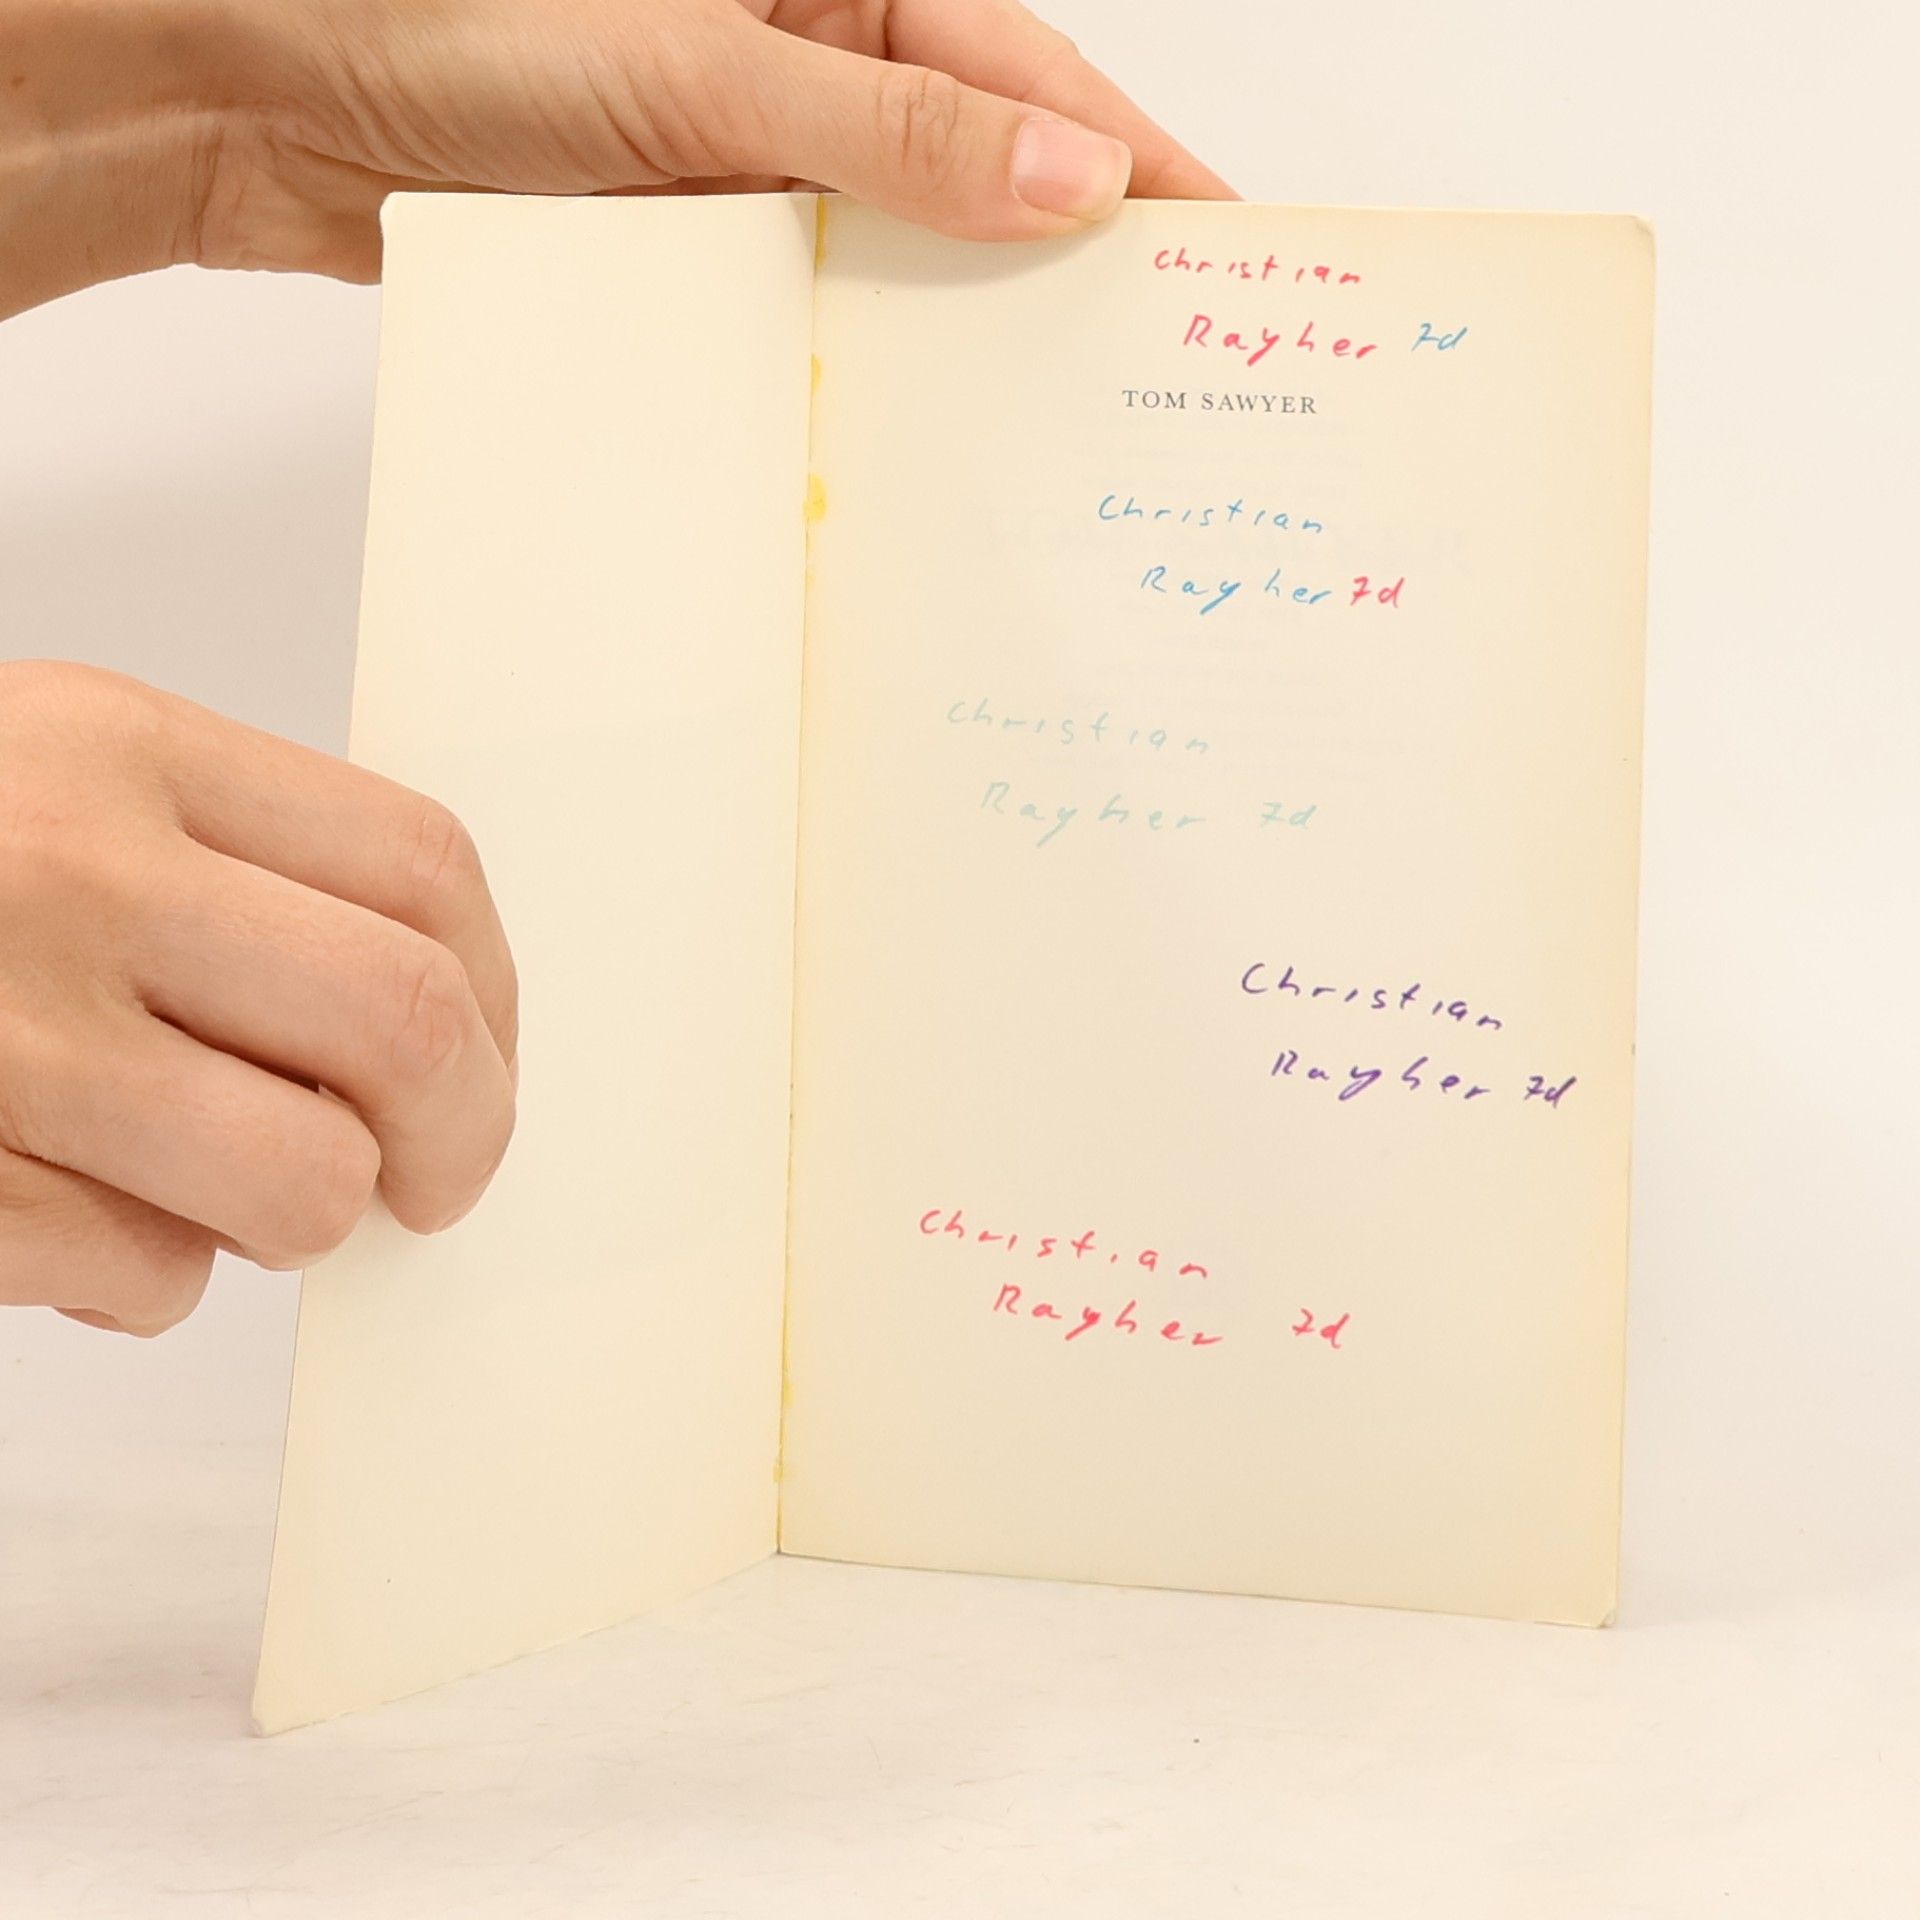 Christian
Rayher 7d
TOM SAWYER
Christian
Rayher 7d
Christian
Rayher 7d
Christian
Rayher 7d
Christian
Rayher 7d